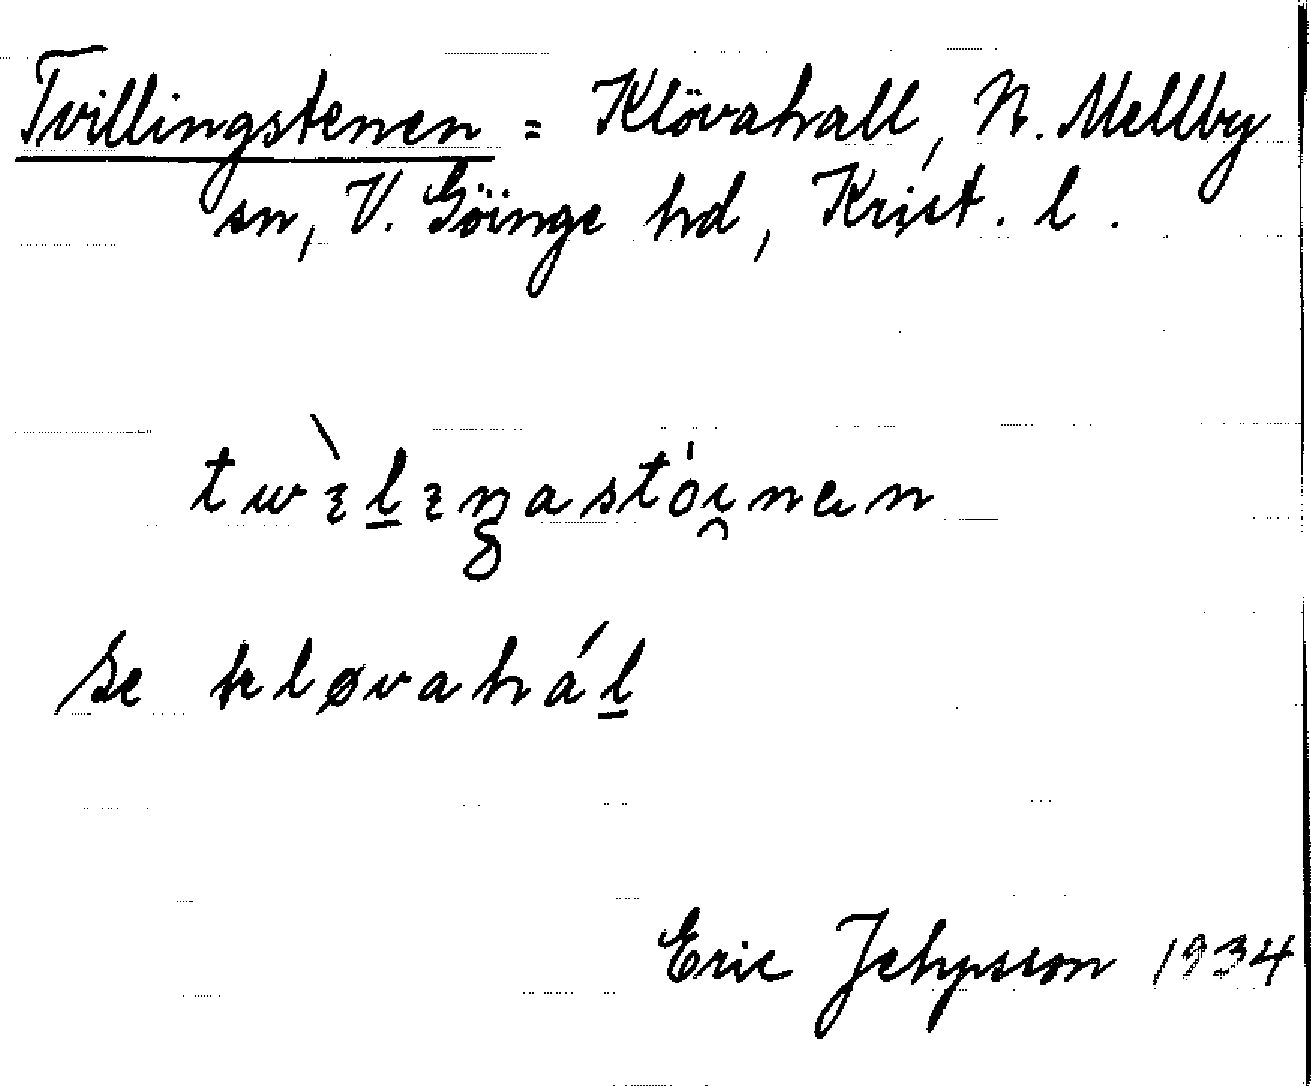 Tvillingstenen = Klövahall, N. Mellby
sn, V. Göinge hd, Krist. l.
se kløvahál
Eric Jehpsson 1934